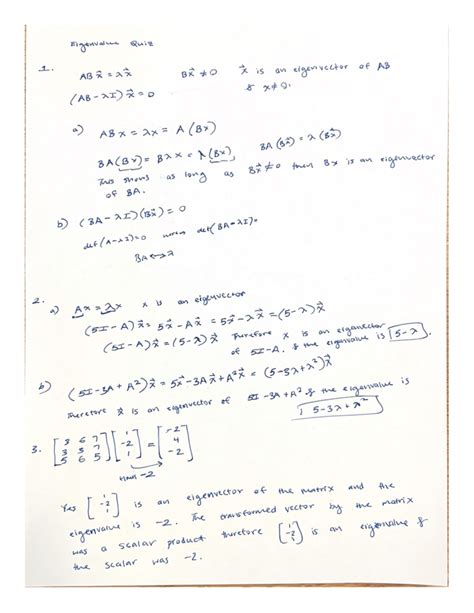 Eigenvalue Quiz
1. ABx⃗ = λx⃗   Bx⃗ ≠ 0   x⃗ is an eigenvector of AB
(AB - λI)x⃗ = 0   & x≠0.
a) ABx = λx = A(Bx)
BA(Bx⃗) = λ(Bx⃗)
BA(Bx) = Bλx = λ(Bx)
This shows as long as Bx⃗≠0 then Bx is an eigenvector
of BA.
b) (BA - λI)(Bx⃗) = 0
det(BA-λI)=
BA ↔ λ
2. a) Ax = λx   x is an eigenvector
(5I - A)x⃗ = 5x⃗ - Ax⃗ = 5x⃗ - λx⃗ = (5-λ)x⃗
(5I - A)x⃗ = (5-λ)x⃗   Therefore x is an eigenvector
of 5I-A. & the eigenvalue is 5-λ.
b) (5I-3A+A²)x⃗ = 5x⃗ - 3Ax⃗ + A²x⃗ = (5-3λ+λ²)x⃗
Therefore x⃗ is an eigenvector of 5I-3A+A² & the eigenvalue is
5-3λ+λ²
3. [3 6 7; 3 3 7; 5 6 5] [1; -2; 1] = [-2; 4; -2]
-2
Yes [1; -2; 1] is an eigenvector of the matrix and the
eigenvalue is -2. The transformed vector by the matrix
was a scalar product therefore [1; -2; 1] is an eigenvalue &
the scalar was -2.